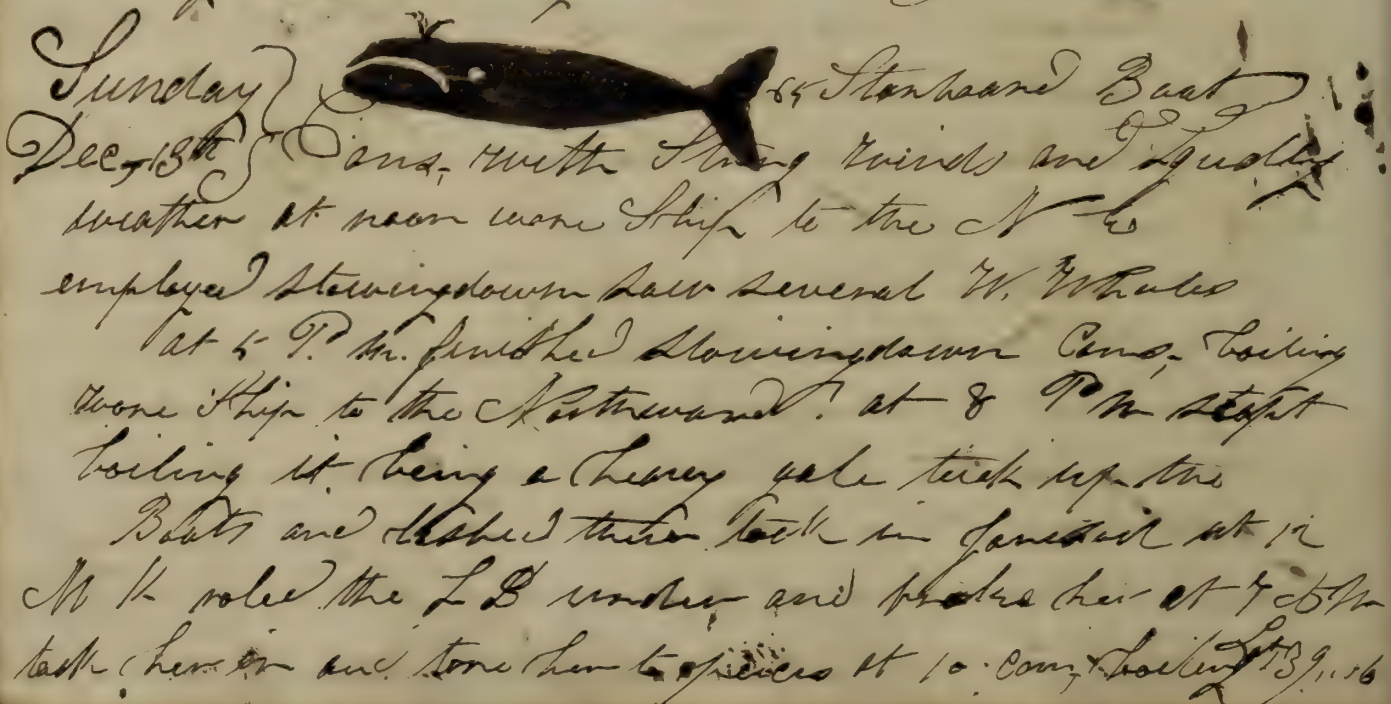 Sunday 65 Starboard Boat
Dec, 13th Coms, with Strong winds and Squally
weather at noon wore Ship to the N E
employed stowingdown saw several W. Whales
at 5 P. M. finished stowingdown Coms, boiling
wore Ship to the Northward at 8 P M stopt
boiling it being a heavy gale tuck up the
Boats and lashed them took in foresail at 12
M K roled the L B under and broke her at 7 A M
took her in and tore her to peices at 10 Com, boiling Lat 39,,56